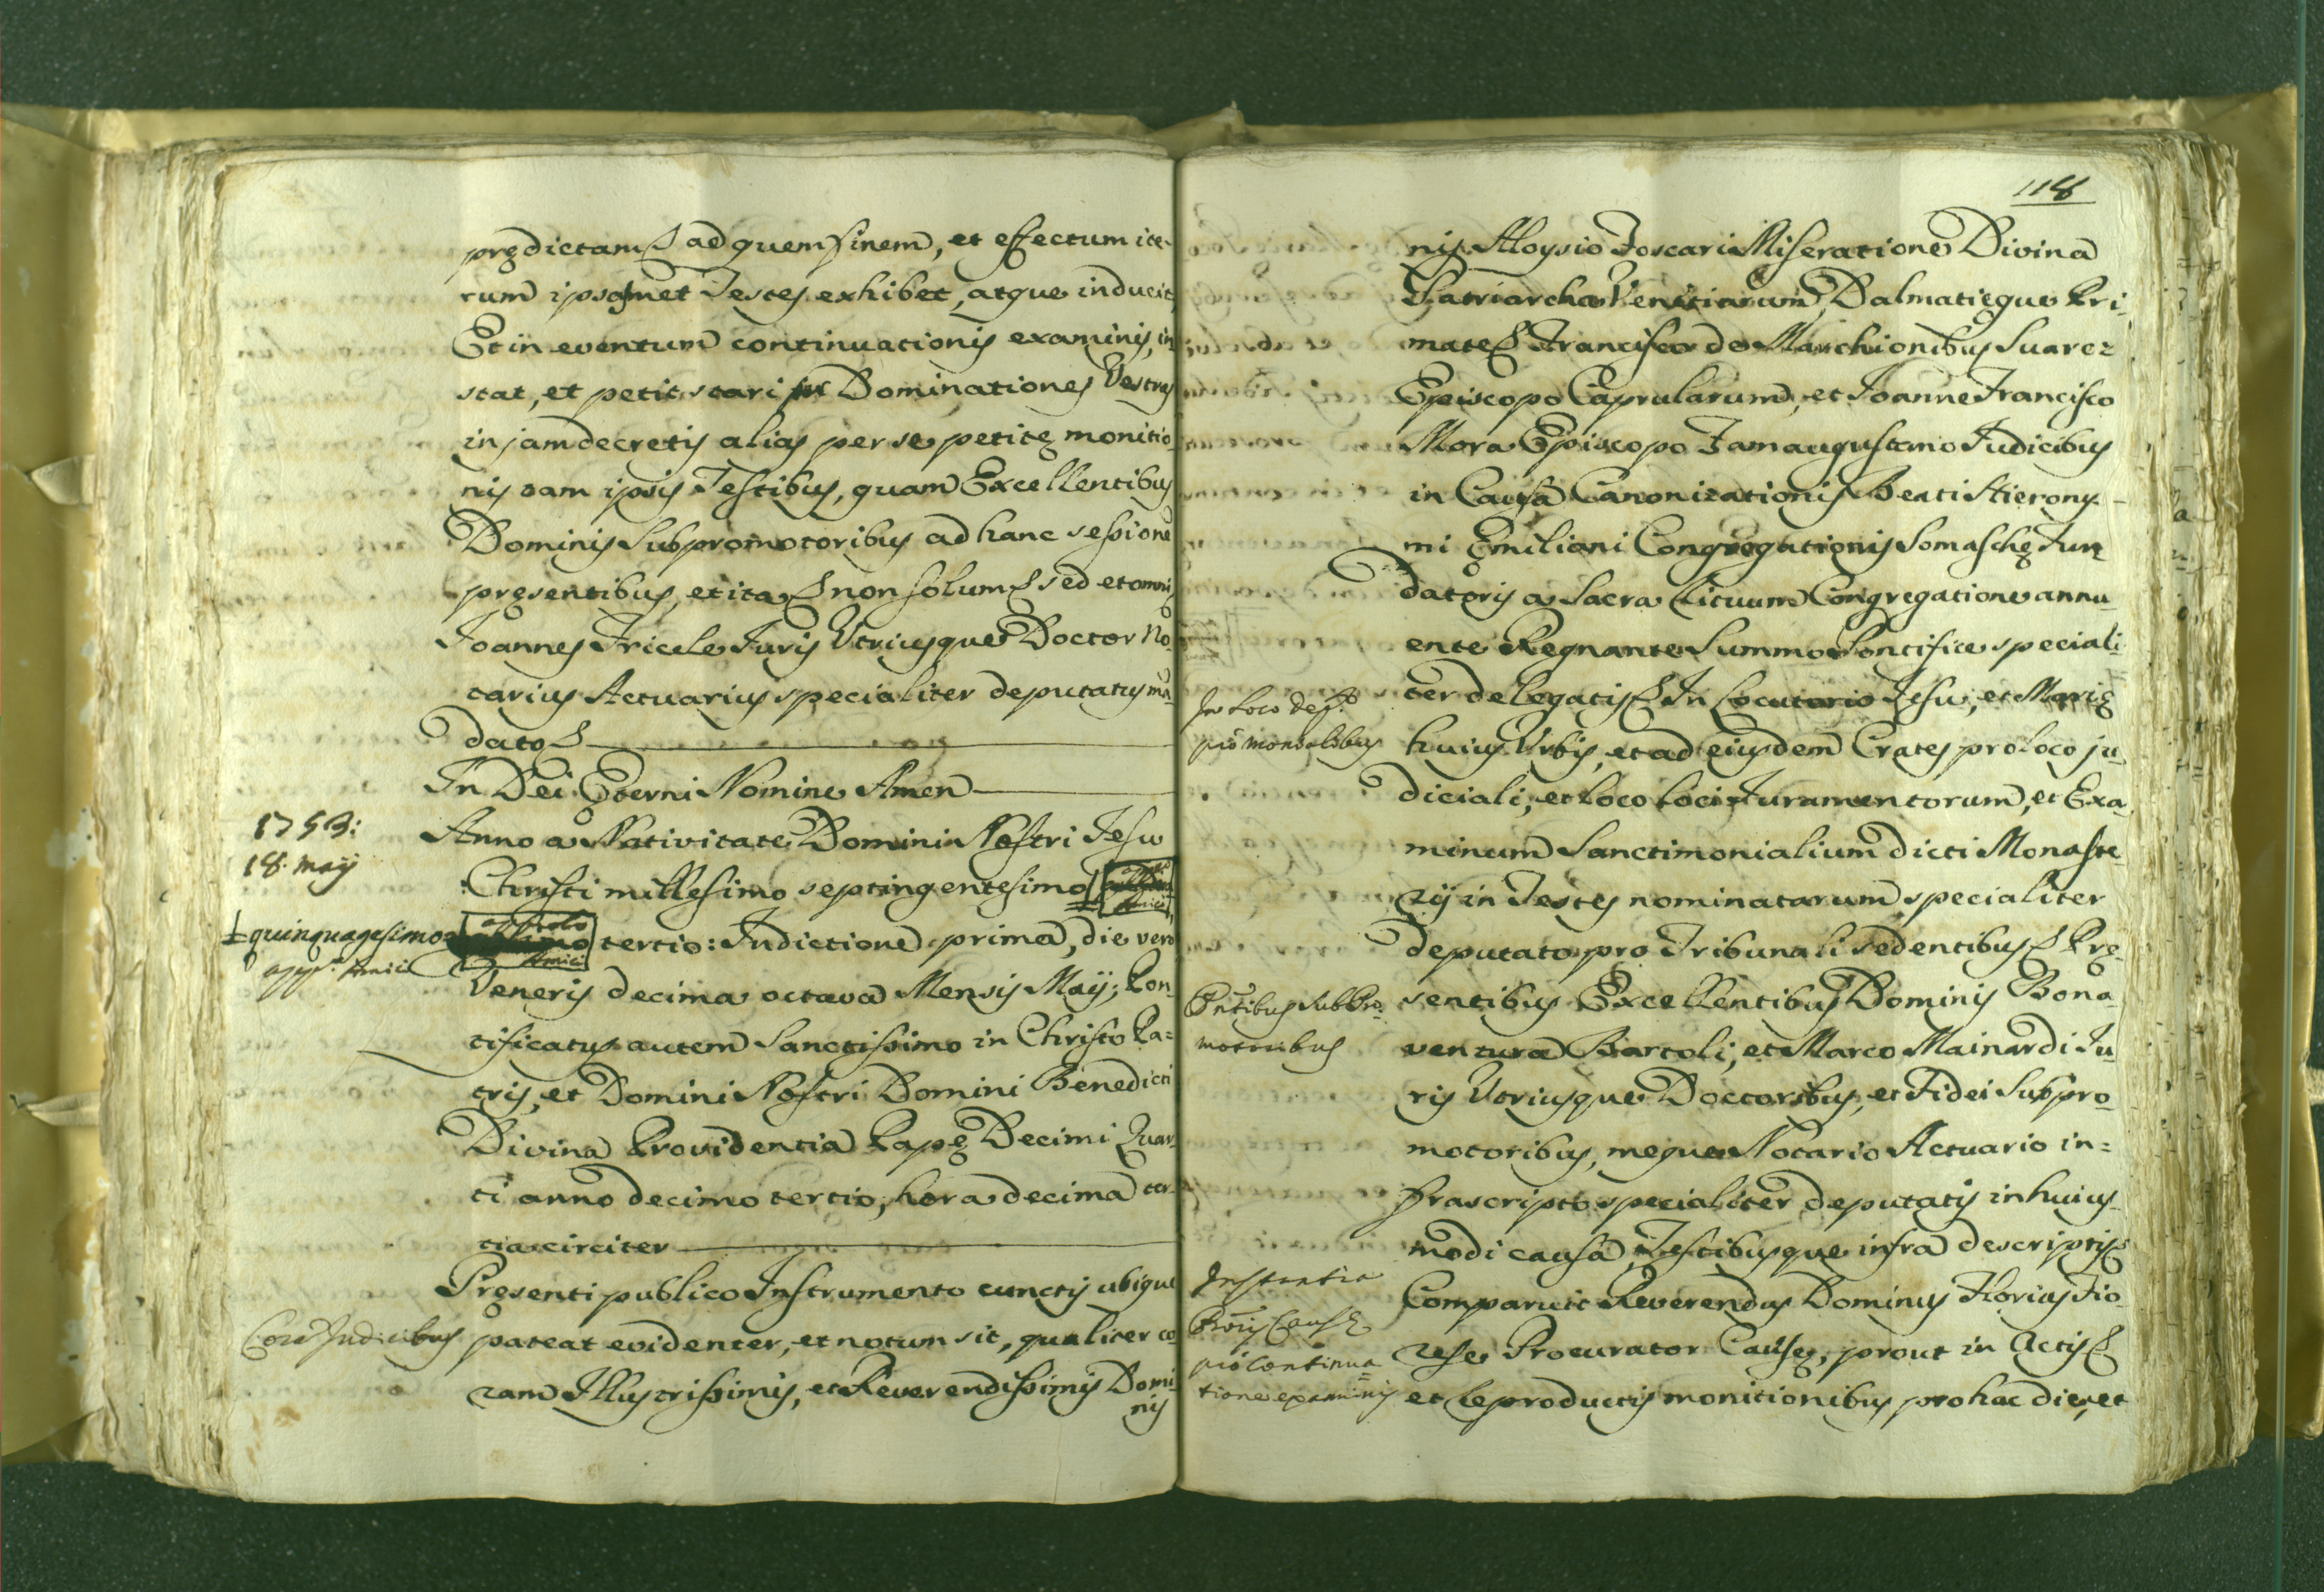 prędictam ad quem finem, et effectum ite-
rum ipsosmet Testes exhibet, atque inducit,
Et in eventum continuationis examinis, in-
stat, et petit stari Dominationes Vestras
in jam decretis alias per se petitę monitio-
nis tam ipsis Testibus, quam Excellentibus
Dominis Subpromotoribus ad hanc sessione
pręsentibus, et ita non solum sed et omni
Joannes Tricele Juris Utriusque Doctor No-
tarius Actuarius specialiter deputatus ma-
dato
In Dei Ęterni Nomine Amen
1753:
18. maij
Anno a Nativitate Domini Nostri Jesu
Christi millesimo septingentesimo
quinquagesimo
tertio: Indictione prima, die vero
Veneris decima octava Mensis Maij; Pon-
tificatus autem Sanctissimo in Christo Pa=
tris, et Domini Nostri Domini Benedicti
Divina Providentia Papę Decimi Quar-
ti anno decimo tertio, hora decima ter-
tia circiter
Pręsenti publico Instrumento cunctis ubique
Corā Judicibus
pateat evidenter, et notum sit, qualiter co-
ram Illustrissimis, et Reverendissimis Domi-
nis
118
nis Aloysio Foscari Miseratione Divina
Patriarcha Venetiarum, Dalmatięque Pri-
mate Francisco de Marchionibus Suarez
Episcopo Caprularum, et Joanne Francisco
Mora Episcopo Famaugustano Judicibus
in Causa Canonizationis Beati Hierony-
mi Ęmiliani Congregationis Somaschę Fun-
datoris a Sacra Rituum Congregatione annu-
ente Regnante Summo Pontifice speciali-
ter delegatis In Locutorio Jesu, et Marię
In loco dep.to
pro monialibus
huius Urbis, et ad eiusdem Crates pro loco ju-
diciali, et loco loci Juramentorum, et Exa-
minum Sanctimonialium dicti Monaste-
rij in Testes nominatarum specialiter
deputato pro Tribunali sedentibus Prę-
Pn̄tibus SubPro-
motoribus
sentibus Excellentibus Dominis Bona-
ventura Bartoli, et Marco Mainardi Ju-
ris Utriusque Doctoribus, et Fidei Subpro-
motoribus, meque Notario Actuario in=
frascripto specialiter deputatis in huius-
modi causa, Testibusque infra descriptis
Instantia
Prōris Causę
pro continua
tione examinis
Comparuit Reverendus Dominus Florius Fio-
rese Procurator Causę, prout in Actis
et reproductis monitionibus pro hac die, et